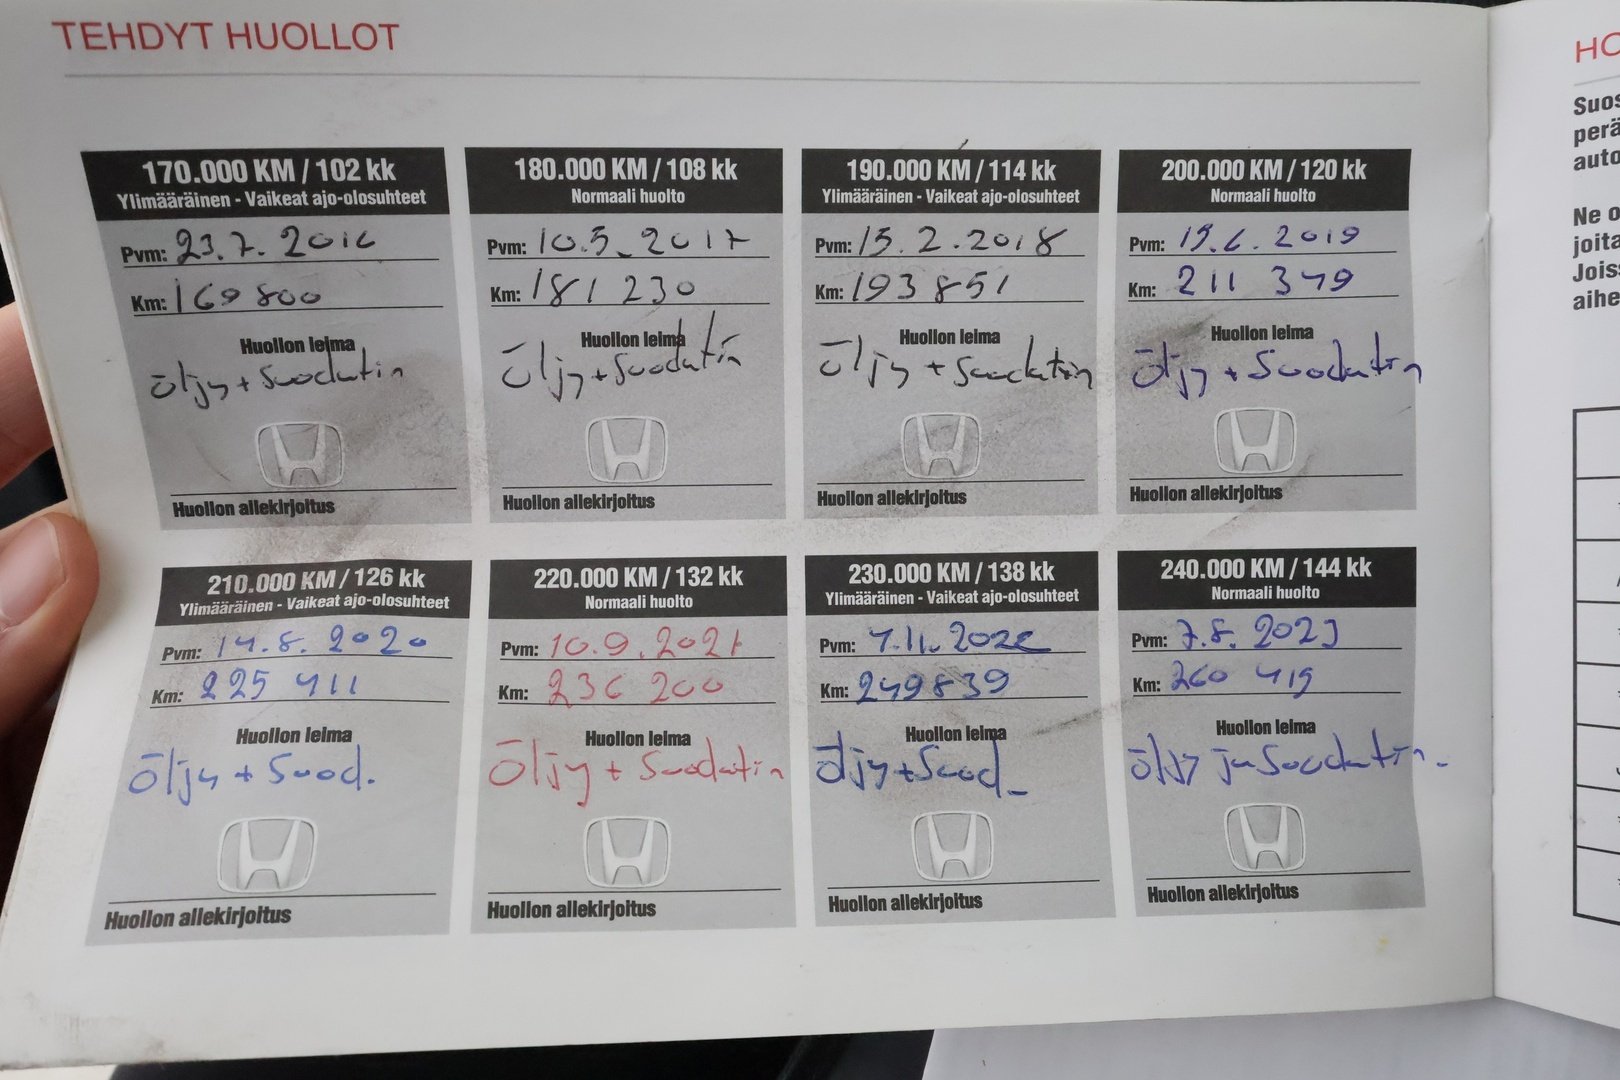 TEHDYT HUOLLOT
170.000 KM / 102 kk
Ylimääräinen - Vaikeat ajo-olosuhteet
Pvm: 23.7.2016
Km: 169 800
Huollon leima
Öljy + Suodatin
Huollon allekirjoitus
180.000 KM / 108 kk
Normaali huolto
Pvm: 10.5.2017
Km: 181 230
Huollon leima
Öljy + Suodatin
Huollon allekirjoitus
190.000 KM / 114 kk
Ylimääräinen - Vaikeat ajo-olosuhteet
Pvm: 15.2.2018
Km: 193 851
Huollon leima
Öljy + Suodatin
Huollon allekirjoitus
200.000 KM / 120 kk
Normaali huolto
Pvm: 19.6.2019
Km: 211 349
Huollon leima
Öljy + Suodatin
Huollon allekirjoitus
210.000 KM / 126 kk
Ylimääräinen - Vaikeat ajo-olosuhteet
Pvm: 14.8.2020
Km: 225 411
Huollon leima
Öljy + Suod.
Huollon allekirjoitus
220.000 KM / 132 kk
Normaali huolto
Pvm: 10.9.2021
Km: 236 200
Huollon leima
Öljy + Suodatin
Huollon allekirjoitus
230.000 KM / 138 kk
Ylimääräinen - Vaikeat ajo-olosuhteet
Pvm: 7.11.2022
Km: 249839
Huollon leima
Öljy + Suod.
Huollon allekirjoitus
240.000 KM / 144 kk
Normaali huolto
Pvm: 7.8.2023
Km: 260 419
Huollon leima
öljy ja Suodatin.
Huollon allekirjoitus
HO
Suos
perä
auto
Ne o
joita
Jois
aihe